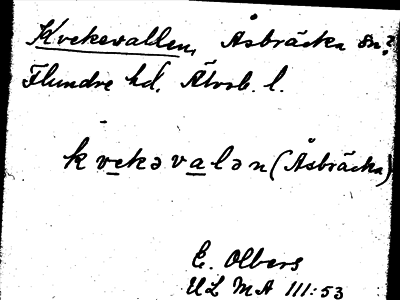 Kvekevallen, Åsbräcka sn?
Flundre hd. Älvsb. l.
kvekəvalən (Åsbräcka)
E. Olbers
ULMA 111:53